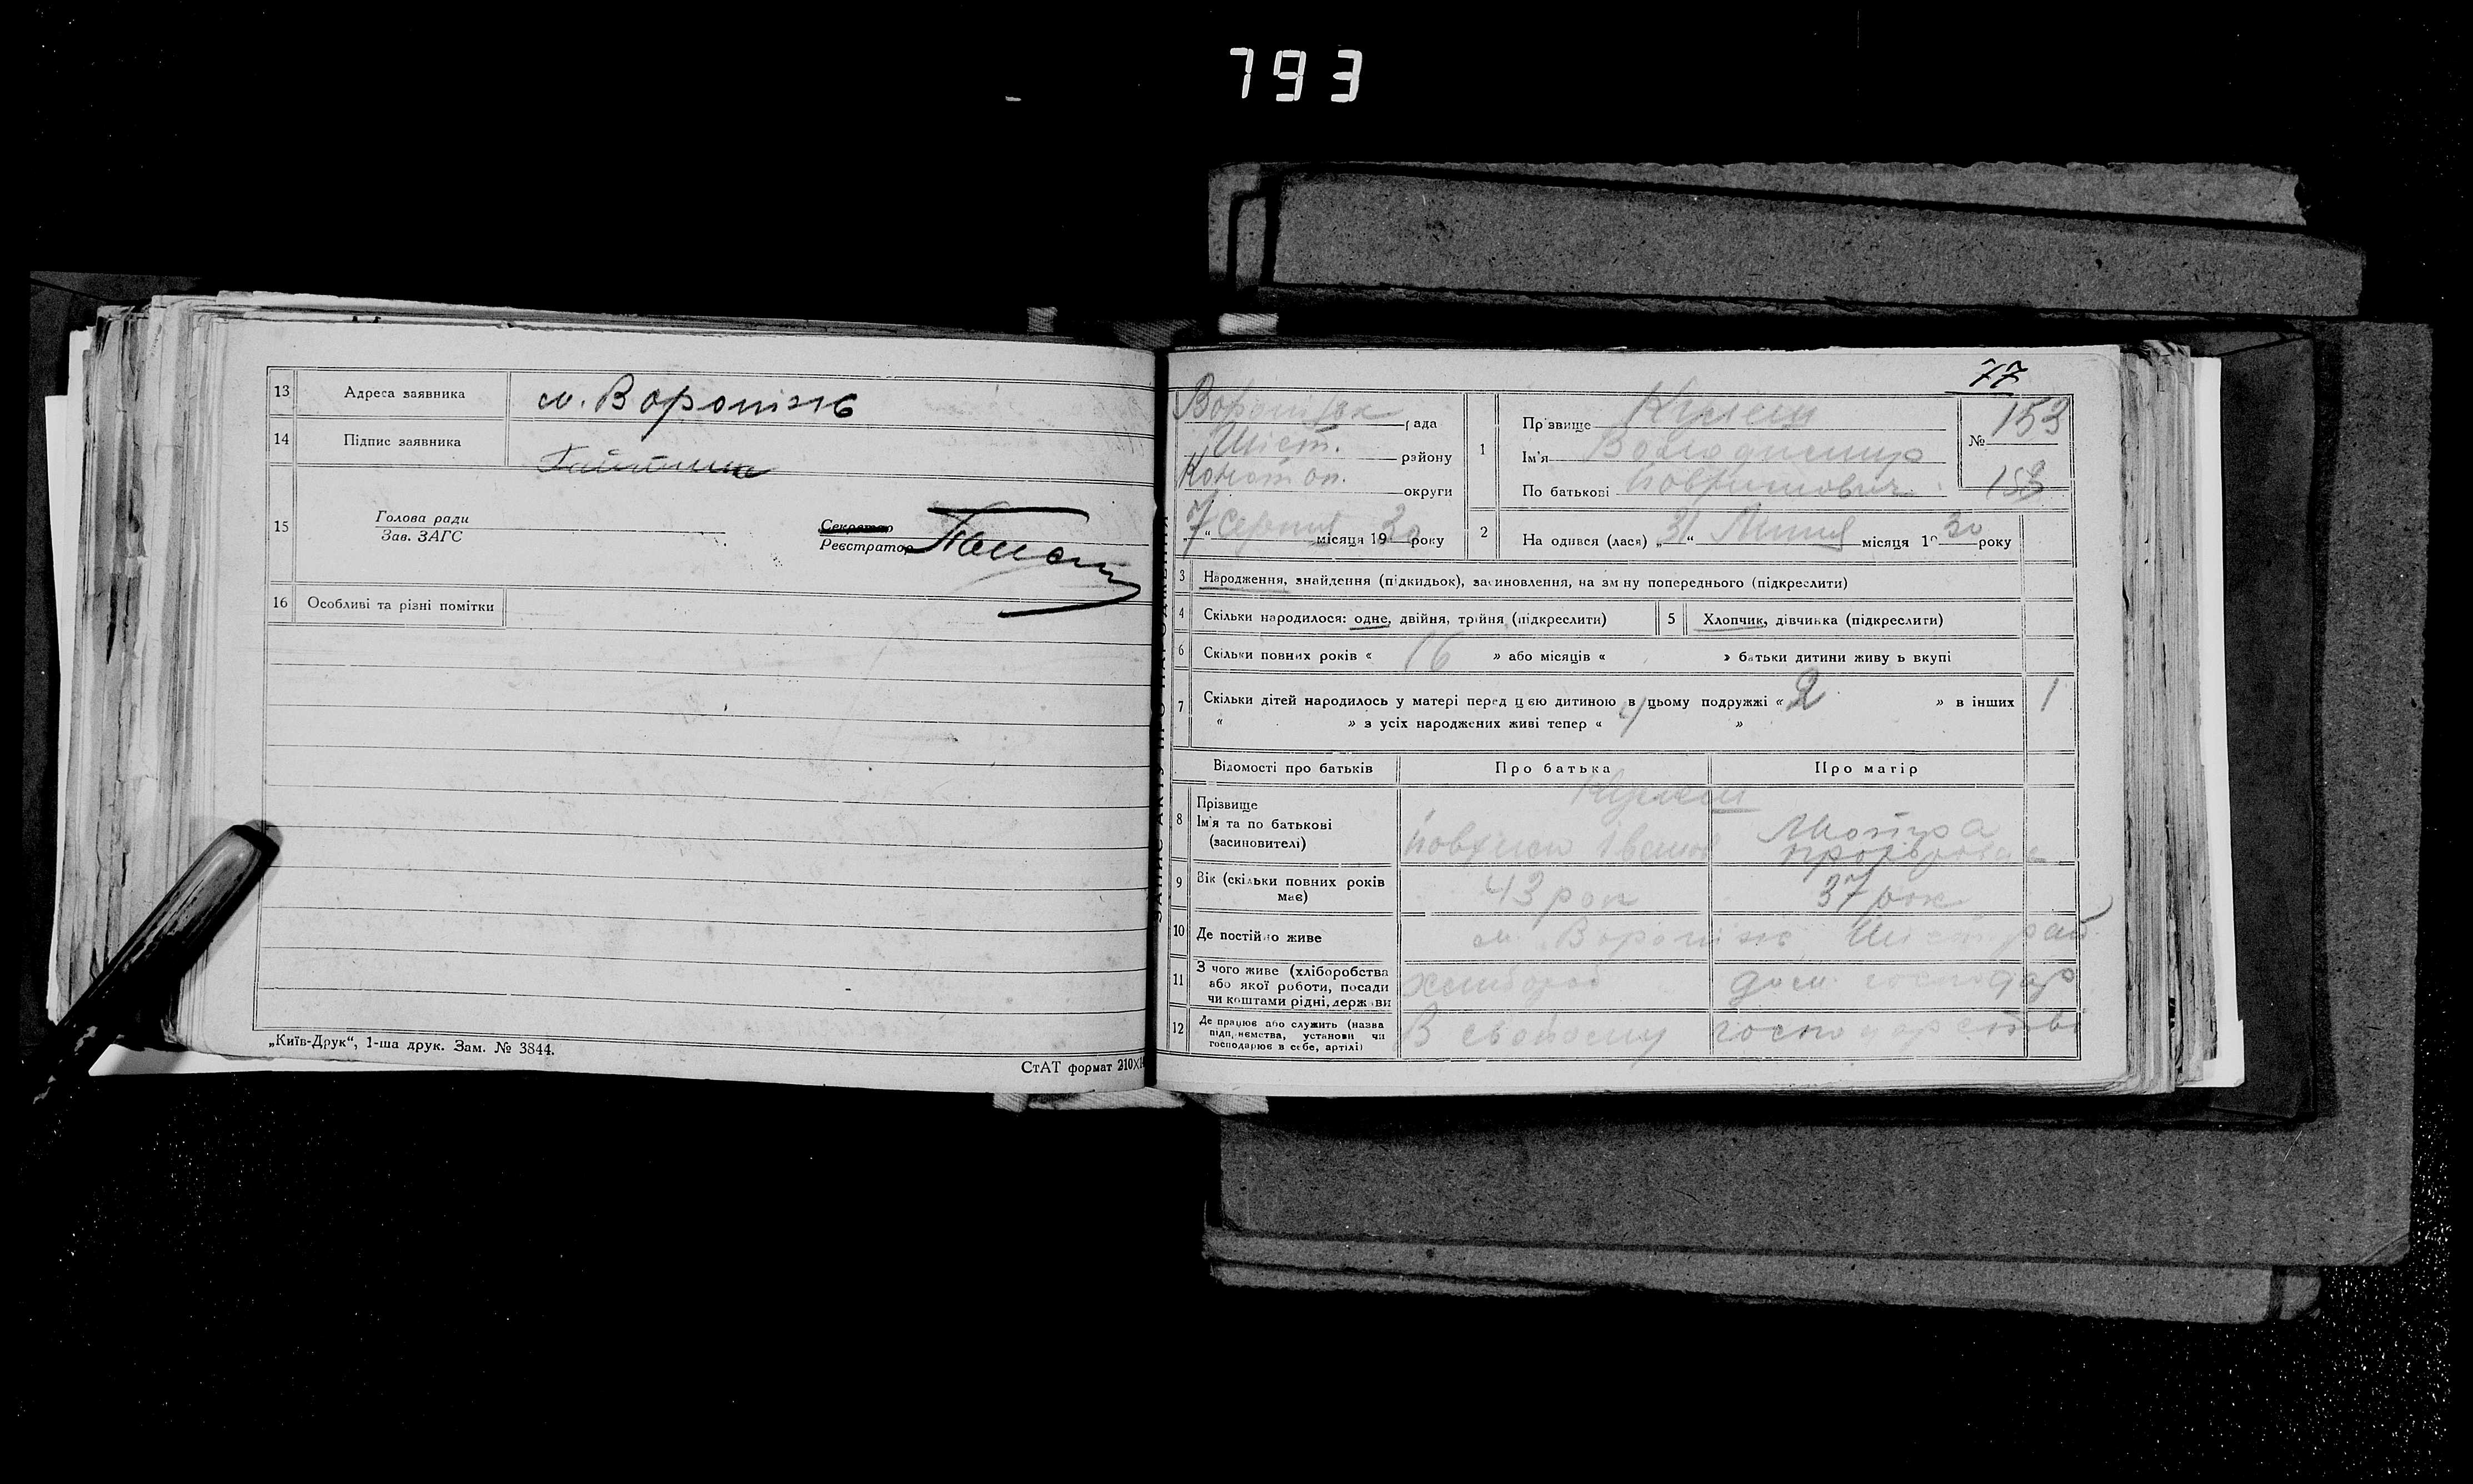 793
13 Адреса заявника м. Вороніж
14 Підпис заявника
15 Голова ради
Зав. ЗАГС
Секретар
Реєстратор
16 Особливі та різні помітки
„Київ-Друк“, 1-ша друк. Зам. № 3844.
СтАТ формат 210×
77
рада
Шіст. району
Конотоп. округи
7 Серпня місяця 1930 року
1 Прізвище Кулеш
Ім'я Володимир
По батькові
№ 153
153
2 На одився (лася) „31“ Липня місяця 1930 року
3 Народження, знайдення (підкидьок), засиновлення, на зміну попереднього (підкреслити)
4 Скільки народилося: одне, двійня, трійня (підкреслити)
5 Хлопчик, дівчинка (підкреслити)
6 Скільки повних років « 16 » або місяців « » батьки дитини живу ь вкупі
7 Скільки дітей народилось у матері перед цією дитиною в цьому подружжі « 2 » в інших 1
« » з усіх народжених живі тепер « 4 »
Відомості про батьків Про батька Про матір
8 Прізвище Кулеш
Ім'я та по батькові Мотря
(засиновителі)
9 Вік (скільки повних років має) 43 рок 37 рок
10 Де постійно живе м. Вороніж Шіст рай.
11 З чого живе (хліборобства
або якої роботи, посади
чи коштами рідні, держави хлибороб дом. господар
12 Де працює або служить (назва
підприємства, установи чи
господарює в себе, артілі) В свойому господарстві